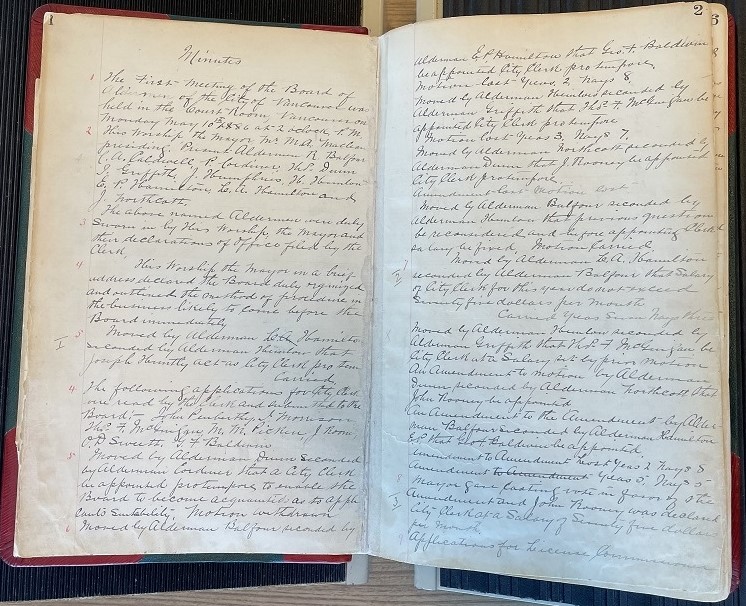 1
Minutes
1 The First Meeting of the Board of
Aldermen of the City of Vancouver was
held in the Court Room, Vancouver on
Monday May 10th 1886 at 2 oclock P.M.
2 His Worship the Mayor Mr M.A. Maclean
presiding. Present Aldermen R Balfour
C. A. Coldwell, P. Cordiner, Thos. Dunn
J. Griffith, J. Humphries, H. Hemlow
E. P. Hamilton, L. A. Hamilton and
J. Northcott.
The above named Aldermen were duly
3 Sworn in by His Worship, the Mayor and
their declarations of Office filed by the
Clerk.
4 His Worship the Mayor in a brief
address declared the Board duly organized
and outlined the method of procedure in
the business likely to come before the
Board immediately
Moved by Alderman L.A. Hamilton
I seconded by Alderman Hemlow that
Joseph Huntly act as City Clerk pro tem
Carried
4 The following applications for City Clerk
were read by the Clerk and submitted to the
Board:- John Pentertley, J. Morrison
Thos. F. McGuigan, M. M. Pickin, J Roon,
O.P. Sweeth, G. F Baldwin
5 Moved by Alderman Dunn seconded
by Alderman Cordiner that a City Clerk
be appointed protempore, to enable the
Board to become acquainted as to appli
cants Suitability. Motion withdrawn
6 Moved by Alderman Balfour seconded by
2
3
Alderman E P Hamilton that Geo. F. Baldwin
be appointed City Clerk pro tempore
Motion Lost Yeas, 2 Nays 8,
Moved by Alderman Hemlow seconded by
Alderman Griffith that Thos. F McGuigan be
appointed City Clerk protempore
Motion lost Yeas 3, Nays 7,
Moved by Alderman Northcott seconded by
Alderman Dunn that J. Rooney be appointed
City Clerk protempore.
Amendment Lost Motion Lost
Moved by Alderman Balfour seconded by
Alderman Hemlow that previous question
be reconsidered and before appointing Clerk
salary be fixed, Motion Carried
7 Moved by Alderman L.A. Hamilton
seconded by Alderman Balfour that Salary
of City Clerk for this year do not exceed
Seventy five dollars per month
Carried Yeas Seven Nays three
8 Moved by Alderman Hemlow seconded by
Alderman Griffith that Thos. F McGuigan be
City Clerk at a Salary set by prior Motion
An Amendment to motion by Alderman
Dunn seconded by Alderman Northcott that
John Rooney be appointed
An Amendment to the Amendment by Alder-
man Balfour seconded by Alderman Hamilton
E.P. that Geo F Baldwin be appointed
Amendment to Amendment Lost Yeas 2 Nays 8
Amendment to Amendment Yeas 5 Nays 5
Mayor gave casting vote in favor of the
Amendment and John Rooney was declared
City Clerk at a Salary of Seventy five dollars
per month.
9 Applications for License Commissioner